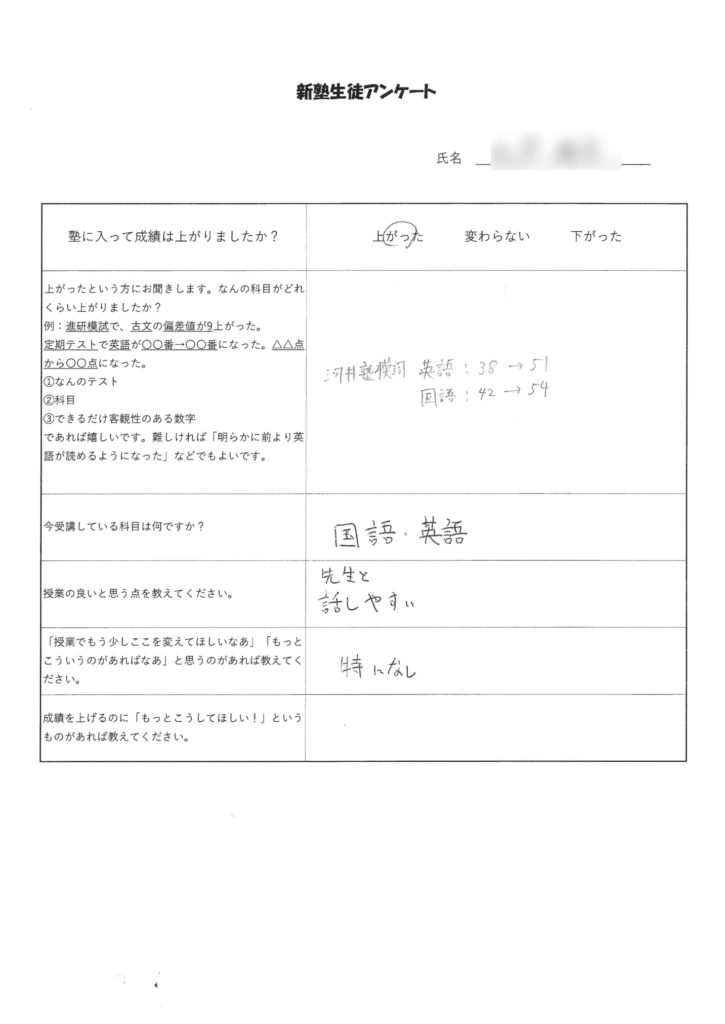 新塾生徒アンケート
氏名
塾に入って成績は上がりましたか？
上がった 変わらない 下がった
上がったという方にお聞きします。なんの科目がどれ
くらい上がりましたか？
例：進研模試で、古文の偏差値が9上がった。
定期テストで英語が〇〇番→〇〇番になった。△△点
から〇〇点になった。
①なんのテスト
②科目
③できるだけ客観性のある数字
であれば嬉しいです。難しければ「明らかに前より英
語が読めるようになった」などでもよいです。
河井塾模試 英語：38 → 51
国語：42 → 54
今受講している科目は何ですか？
国語・英語
授業の良いと思う点を教えてください。
先生と
話しやすい
「授業でもう少しここを変えてほしいなあ」「もっと
こういうのがあればなあ」と思うのがあれば教えてく
ださい。
特になし
成績を上げるのに「もっとこうしてほしい！」という
ものがあれば教えてください。